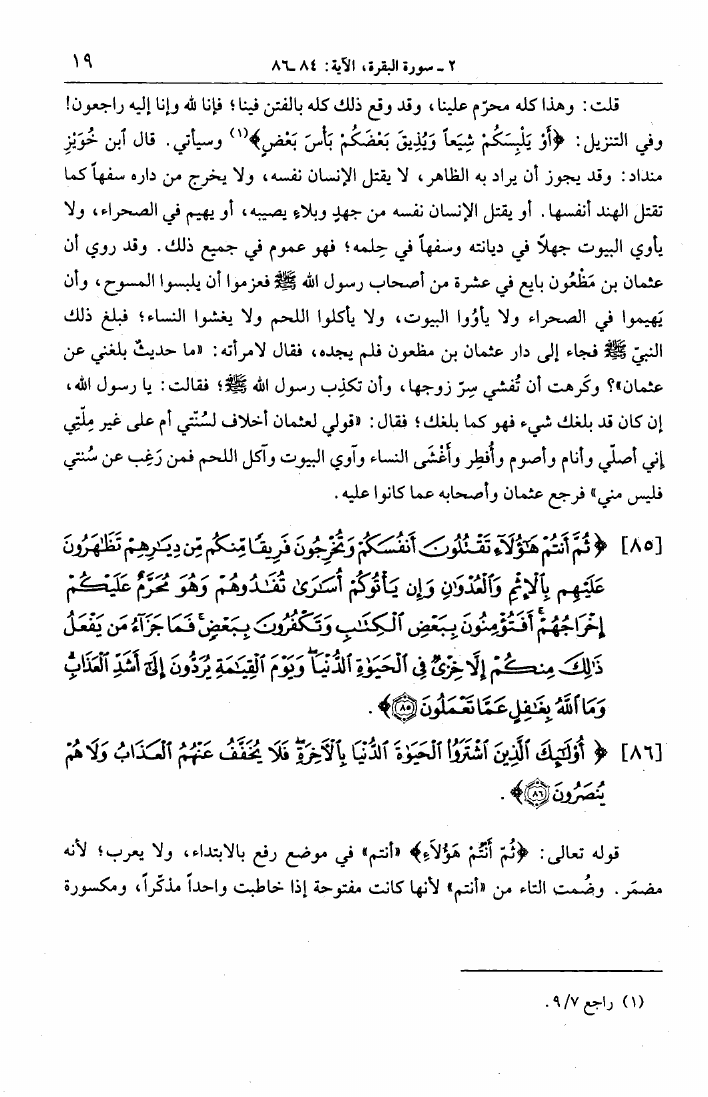 ٢ ـ سورة البقرة، الآية: ٨٤ ـ ٨٦
١٩
قلت: وهذا كله محرّم علينا، وقد وقع ذلك كله بالفتن فينا؛ فإنا لله وإنا إليه راجعون!
وفي التنزيل: ﴿أَوْ يَلْبِسَكُمْ شِيَعاً وَيُذِيقَ بَعْضَكُمْ بَأْسَ بَعْضٍ﴾(١) وسيأتي. قال ٱبن خُوَيْزِ
منداد: وقد يجوز أن يراد به الظاهر، لا يقتل الإنسان نفسه، ولا يخرج من داره سفهاً كما
تقتل الهند أنفسها. أو يقتل الإنسان نفسه من جهدٍ وبلاءٍ يصيبه، أو يهيم في الصحراء، ولا
يأوي البيوت جهلاً في ديانته وسفهاً في حِلمه؛ فهو عموم في جميع ذلك. وقد روي أن
عثمان بن مَظْعُون بايع في عشرة من أصحاب رسول الله ﷺ فعزموا أن يلبسوا المسوح، وأن
يَهيموا في الصحراء ولا يأوُوا البيوت، ولا يأكلوا اللحم ولا يغشوا النساء؛ فبلغ ذلك
النبيّ ﷺ فجاء إلى دار عثمان بن مظعون فلم يجده، فقال لامرأته: «ما حديثٌ بلغني عن
عثمان»؟ وكَرهت أن تُفشي سِرّ زوجها، وأن تكذِب رسول الله ﷺ؛ فقالت: يا رسول الله،
إن كان قد بلغك شيء فهو كما بلغك؛ فقال: «قولي لعثمان أخلاف لسُنّتي أم على غير مِلّتِي
إني أصلّي وأنام وأصوم وأُفطِر وأَغْشَى النساء وآوي البيوت وآكل اللحم فمن رَغِب عن سُنتي
فليس مني» فرجع عثمان وأصحابه عما كانوا عليه.
[٨٥] ﴿ ثُمَّ أَنتُمْ هَٰٓؤُلَآءِ تَقْتُلُونَ أَنفُسَكُمْ وَتُخْرِجُونَ فَرِيقًا مِّنكُم مِّن دِيَٰرِهِمْ تَظَٰهَرُونَ
عَلَيْهِم بِٱلْإِثْمِ وَٱلْعُدْوَٰنِ وَإِن يَأْتُوكُمْ أُسَٰرَىٰ تُفَٰدُوهُمْ وَهُوَ مُحَرَّمٌ عَلَيْكُمْ
إِخْرَاجُهُمْ ۚ أَفَتُؤْمِنُونَ بِبَعْضِ ٱلْكِتَٰبِ وَتَكْفُرُونَ بِبَعْضٍ ۚ فَمَا جَزَآءُ مَن يَفْعَلُ
ذَٰلِكَ مِنكُمْ إِلَّا خِزْىٌ فِى ٱلْحَيَوٰةِ ٱلدُّنْيَا ۖ وَيَوْمَ ٱلْقِيَٰمَةِ يُرَدُّونَ إِلَىٰٓ أَشَدِّ ٱلْعَذَابِ ۗ
وَمَا ٱللَّهُ بِغَٰفِلٍ عَمَّا تَعْمَلُونَ ٨٥ ﴾.
[٨٦] ﴿ أُو۟لَٰٓئِكَ ٱلَّذِينَ ٱشْتَرَوُا۟ ٱلْحَيَوٰةَ ٱلدُّنْيَا بِٱلْءَاخِرَةِ ۖ فَلَا يُخَفَّفُ عَنْهُمُ ٱلْعَذَابُ وَلَا هُمْ
يُنصَرُونَ ٨٦ ﴾.
قوله تعالى: ﴿ثُمَّ أَنْتُمْ هَؤُلاَءِ﴾ «أنتم» في موضع رفع بالابتداء، ولا يعرب؛ لأنه
مضمَر. وضُمت التاء من «أنتم» لأنها كانت مفتوحة إذا خاطبت واحداً مذكّراً، ومكسورة
(١) راجع ٩/٧.